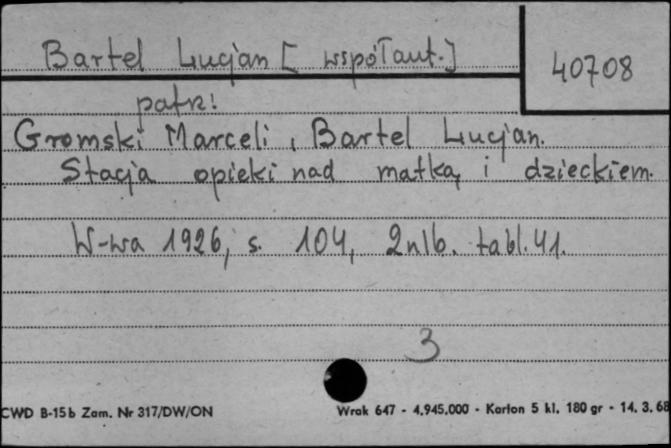 Bartel Lucjan [ współaut.]
40708
patrz:
Gromski Marceli, Bartel Lucjan.
Stacja opieki nad matką i dzieckiem.
W-wa 1926, s. 104, 2nlb. tabl. 41.
3
CWD B-15b Zam. Nr 317/DW/ON
Wrak 647 - 4.945.000 - Karton 5 kl. 180 gr - 14. 3. 68